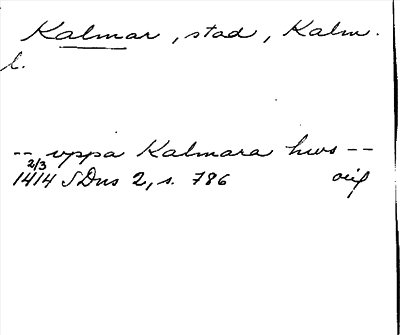 Kalmar, stad, Kalm.
l.
-- vppa Kalmara hws --
2/3
1414 SDns 2, s. 786